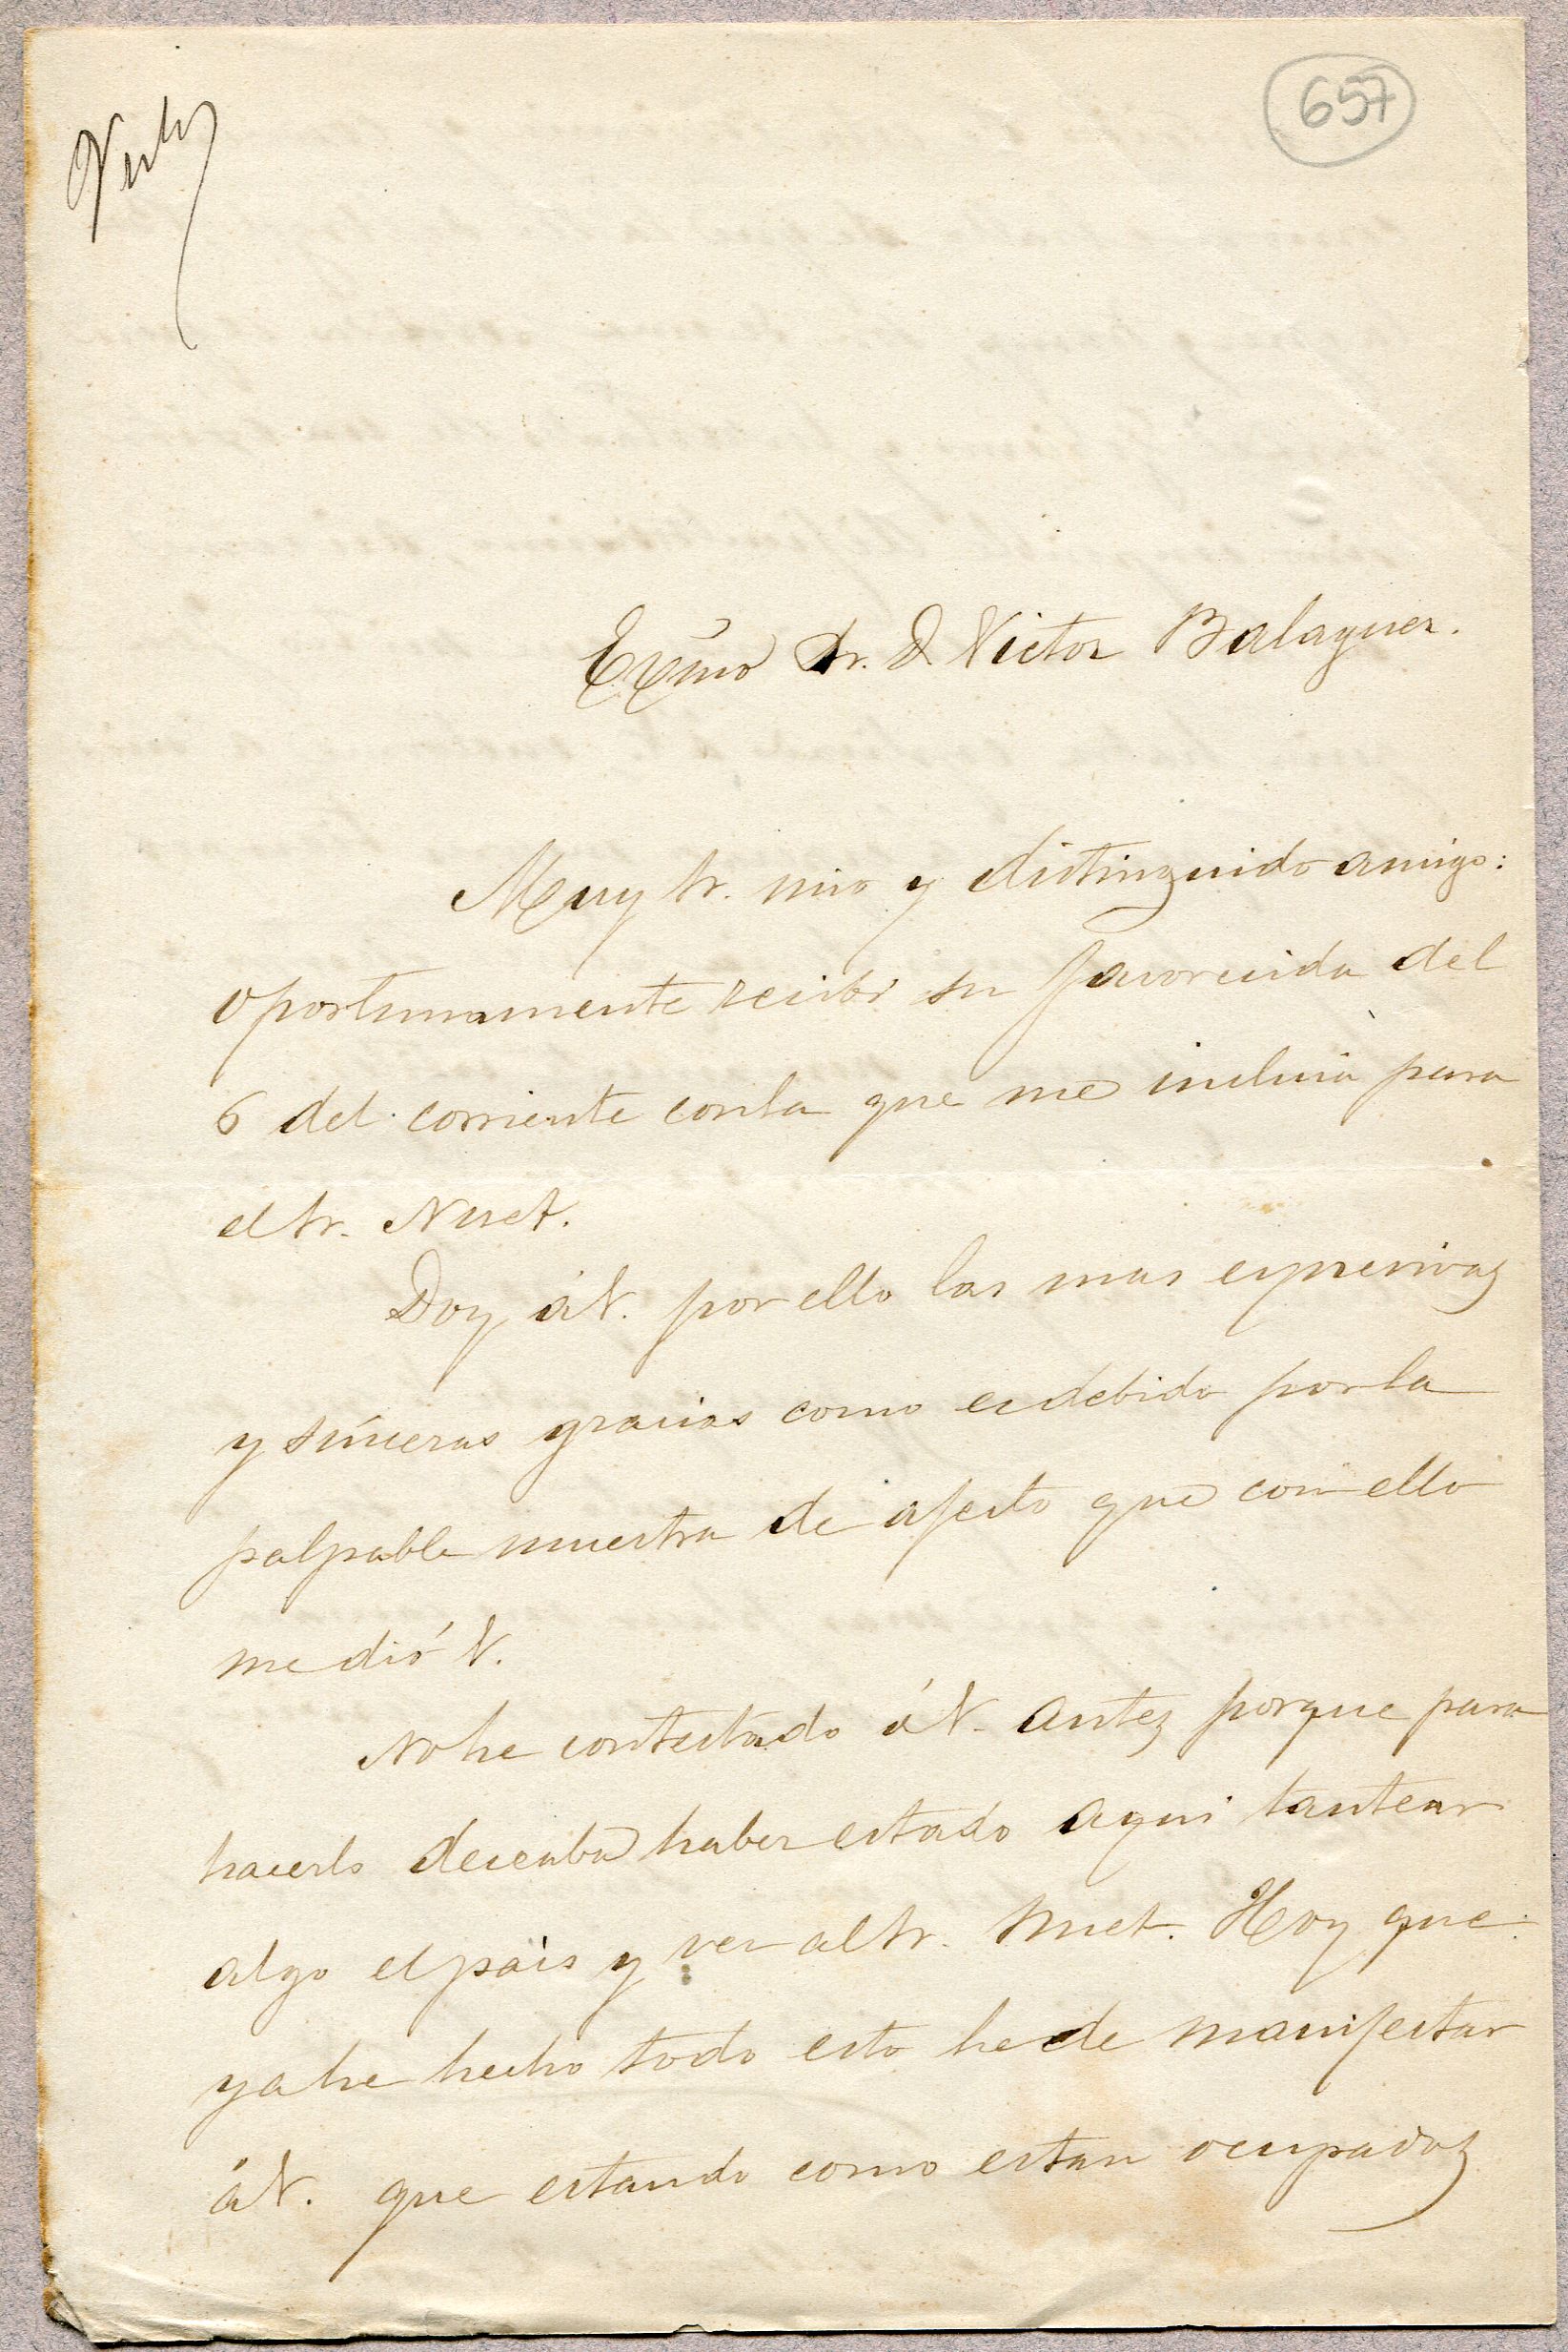 657
Exmo Sr. D Victor Balaguer.
Muy Sr. mio y distinguido amigo:
oportunamente recibi su favorecida del
6 del corriente con la que me incluia para
el Sr. Nuet.
Doy á V. por ello las mas expresivas
y sinceras gracias como es debido por la
palpable muestra de afecto que con ello
me dió V.
No he contestado á V. antes porque para
hacerlo deseaba haber estado aqui tantear
algo el pais y ver al Sr. Nuet. Hoy que
ya he hecho todo esto he de manifestar
á V. que estando como estan ocupados